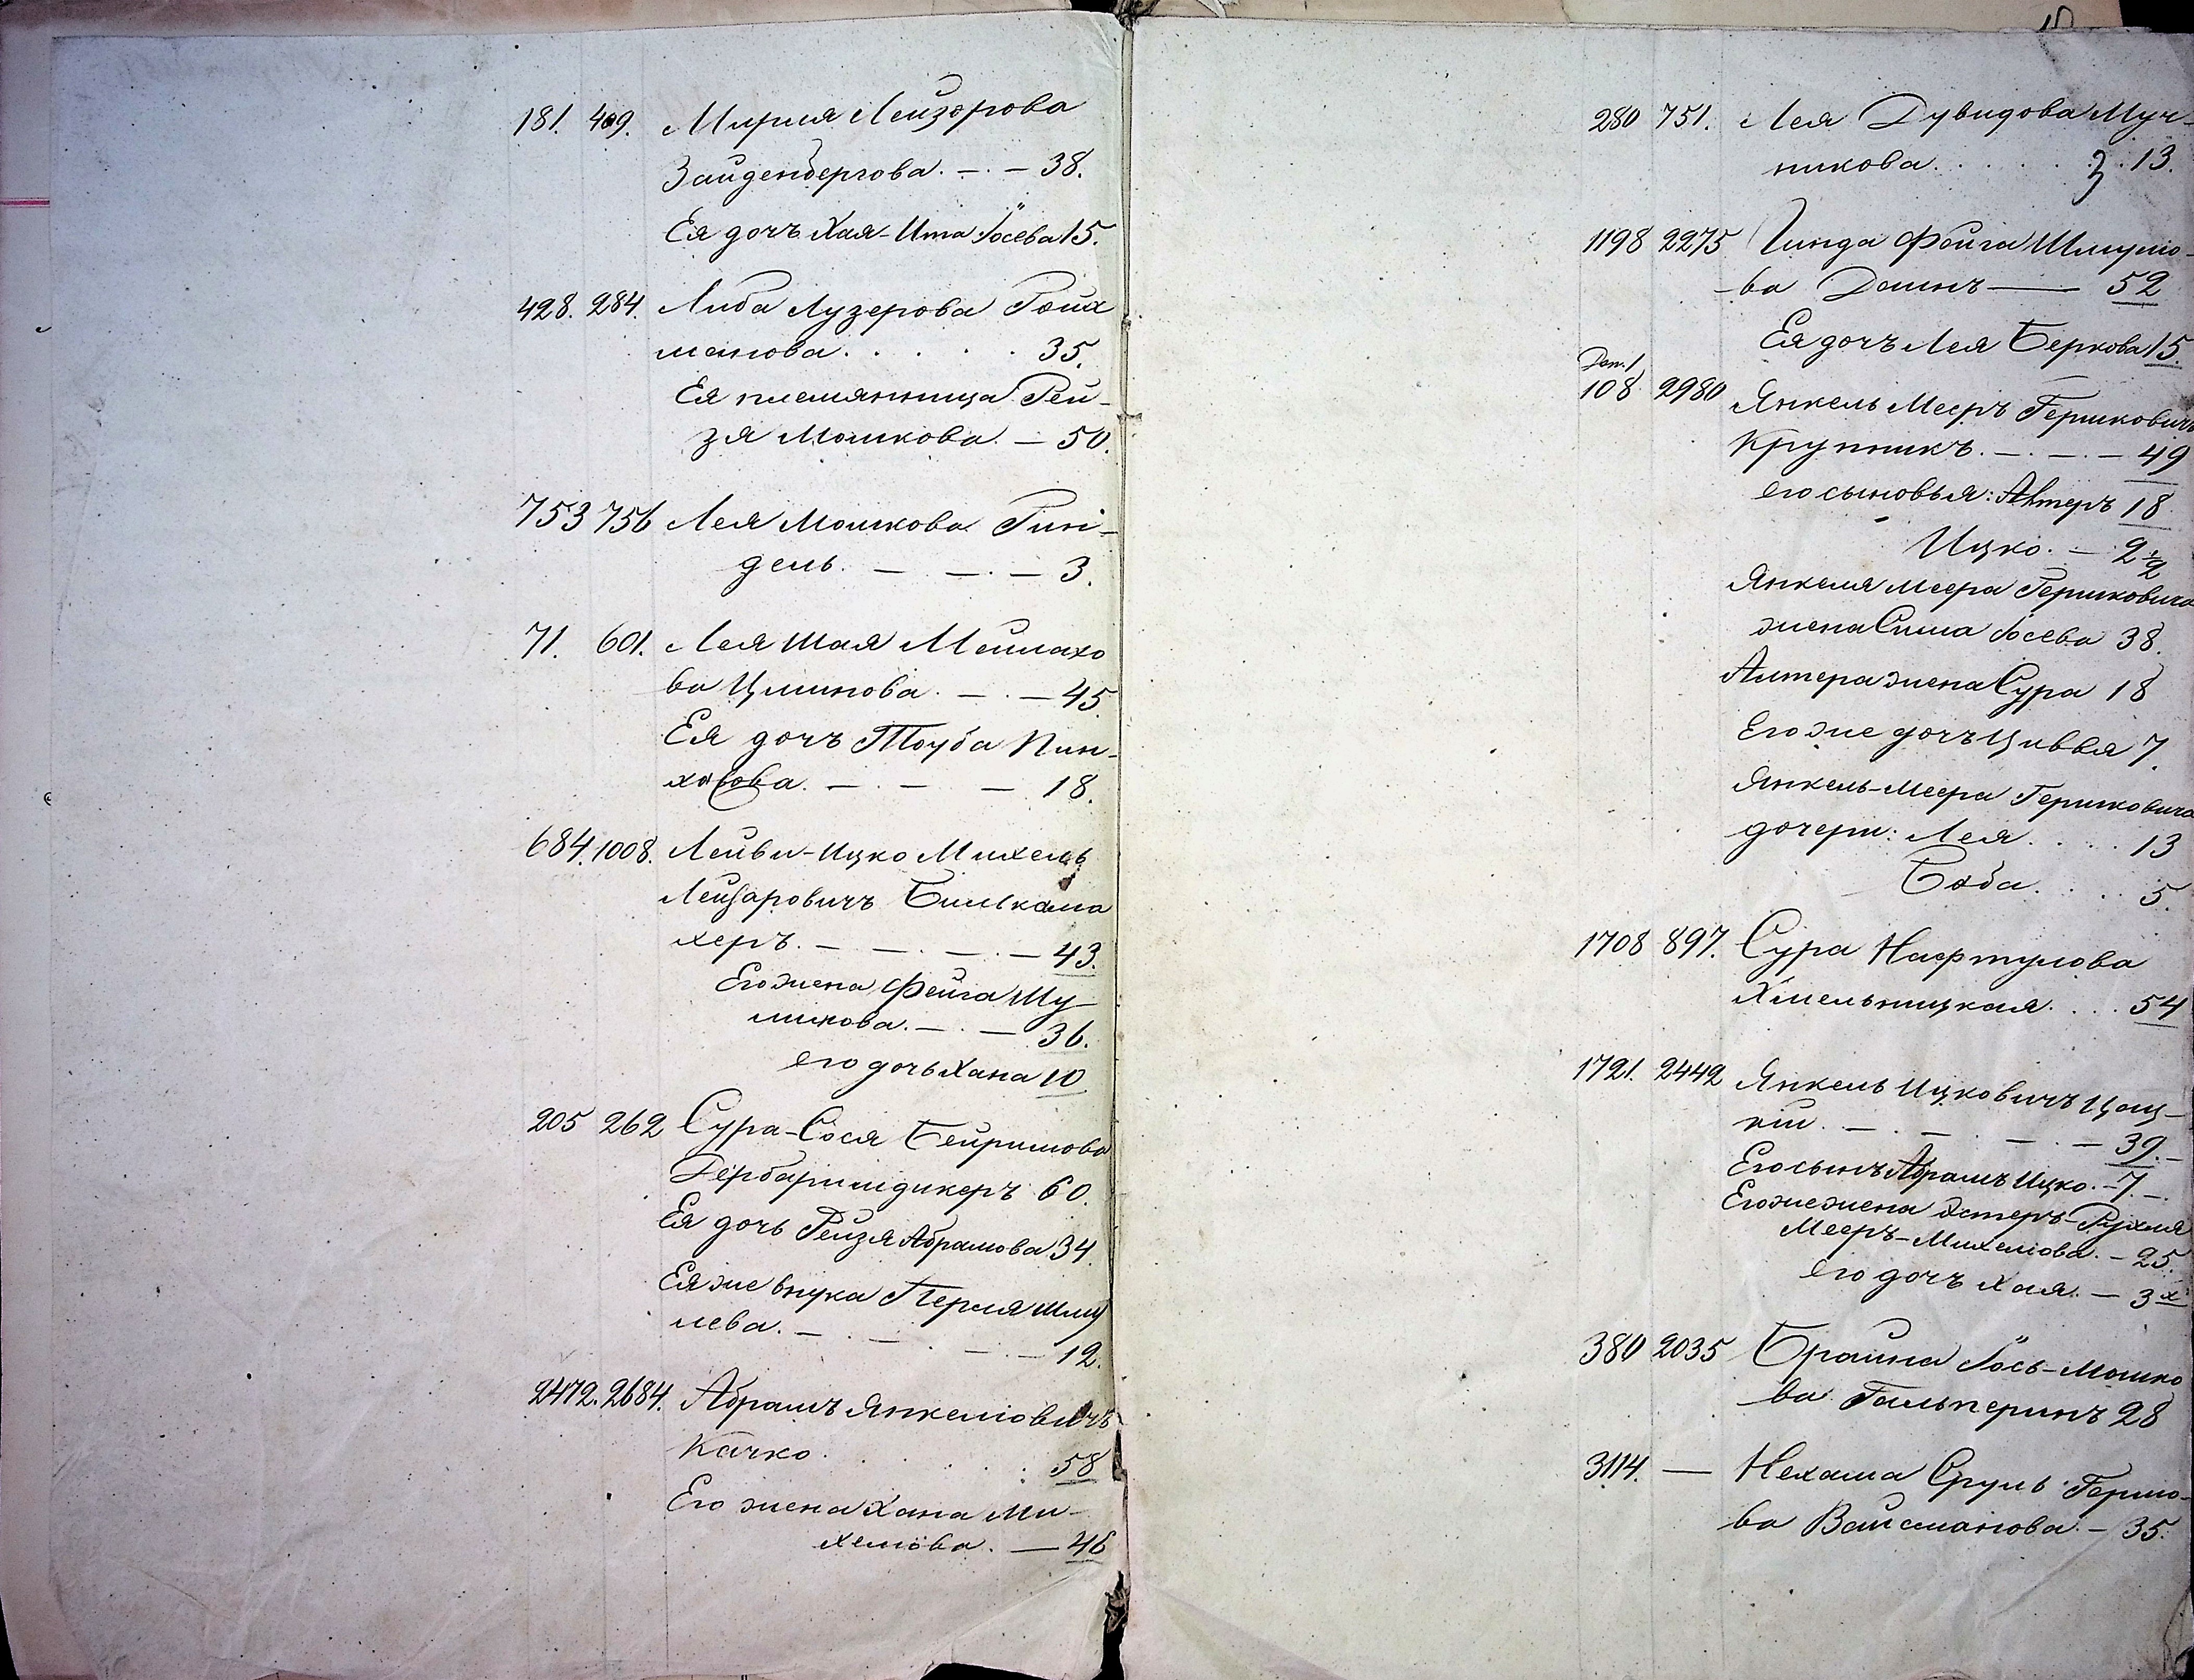 181. 409. Мирля Лейзорова
Зайденбергова. — 38.
Ея дочъ Хая-Ита Іосева 15.
428. 284. Либа Лузерова Гойх
манова. . . . . 35.
Ея племянница Рей-
зя Мошкова. — 50.
753 756 Лея Мошкова Гин-
дель. — — 3.
71. 601. Лея Шая Мейлахо
ва Цмилова. — 45
Ея дочъ Тоуба Пин-
хосова. — — 18.
684. 1008. Лейви-Ицко Михель
Лейзаровичъ
херъ. — — — 43.
Его жена Фейга Шу-
лимова. — 36.
его дочь Хана 10
205 262 Сура-Сося Бейришова
Дербаримдикеръ 60.
Ея дочь Рейзя Абрамова 34.
Ея же внука Перля Шму
лева. — — 12.
2472. 2684. Абрамъ Янкеліовичъ
Качко. . . . . 58
Его жена Хана Ми-
хеліова. — 46
280 751. Лея Дувидова Муч-
никова. . . . 13.
1198 2275 Гинда Фейга Шмуліо-
ва — 52
Ея дочъ Лея Беркова 15.
Доп. 1
108 2980 Янкель Мееръ Гершковичъ
Крупникъ. — — 49
его сыновья: Алтеръ 18
Ицко. — 2 1/2
Янкеля Меера Гершковича
жена Сима Іосева 38.
Алтера жена Сура 18
Его же дочъ Цивья 7.
Янкель-Меера Гершковича
дочери: Лея. . . 13
Боба. . . 5.
1708 897. Сура Нафтулова
Хмельницкая. . . 54
1721. 2442 Янкель Ицковичъ
кій. — — — 39. —
Его сынъ Абрамъ Ицко. — 7. —
Его же жена Эстеръ-Рухля
Мееръ-Михеліова. — 25.
его дочъ Хая. — 3х
380 2035 Брайна Іось-Мошко
ва Гальперинъ 28
3114. — Нехама Сруль Гершо-
ва Вайсманова. — 35.